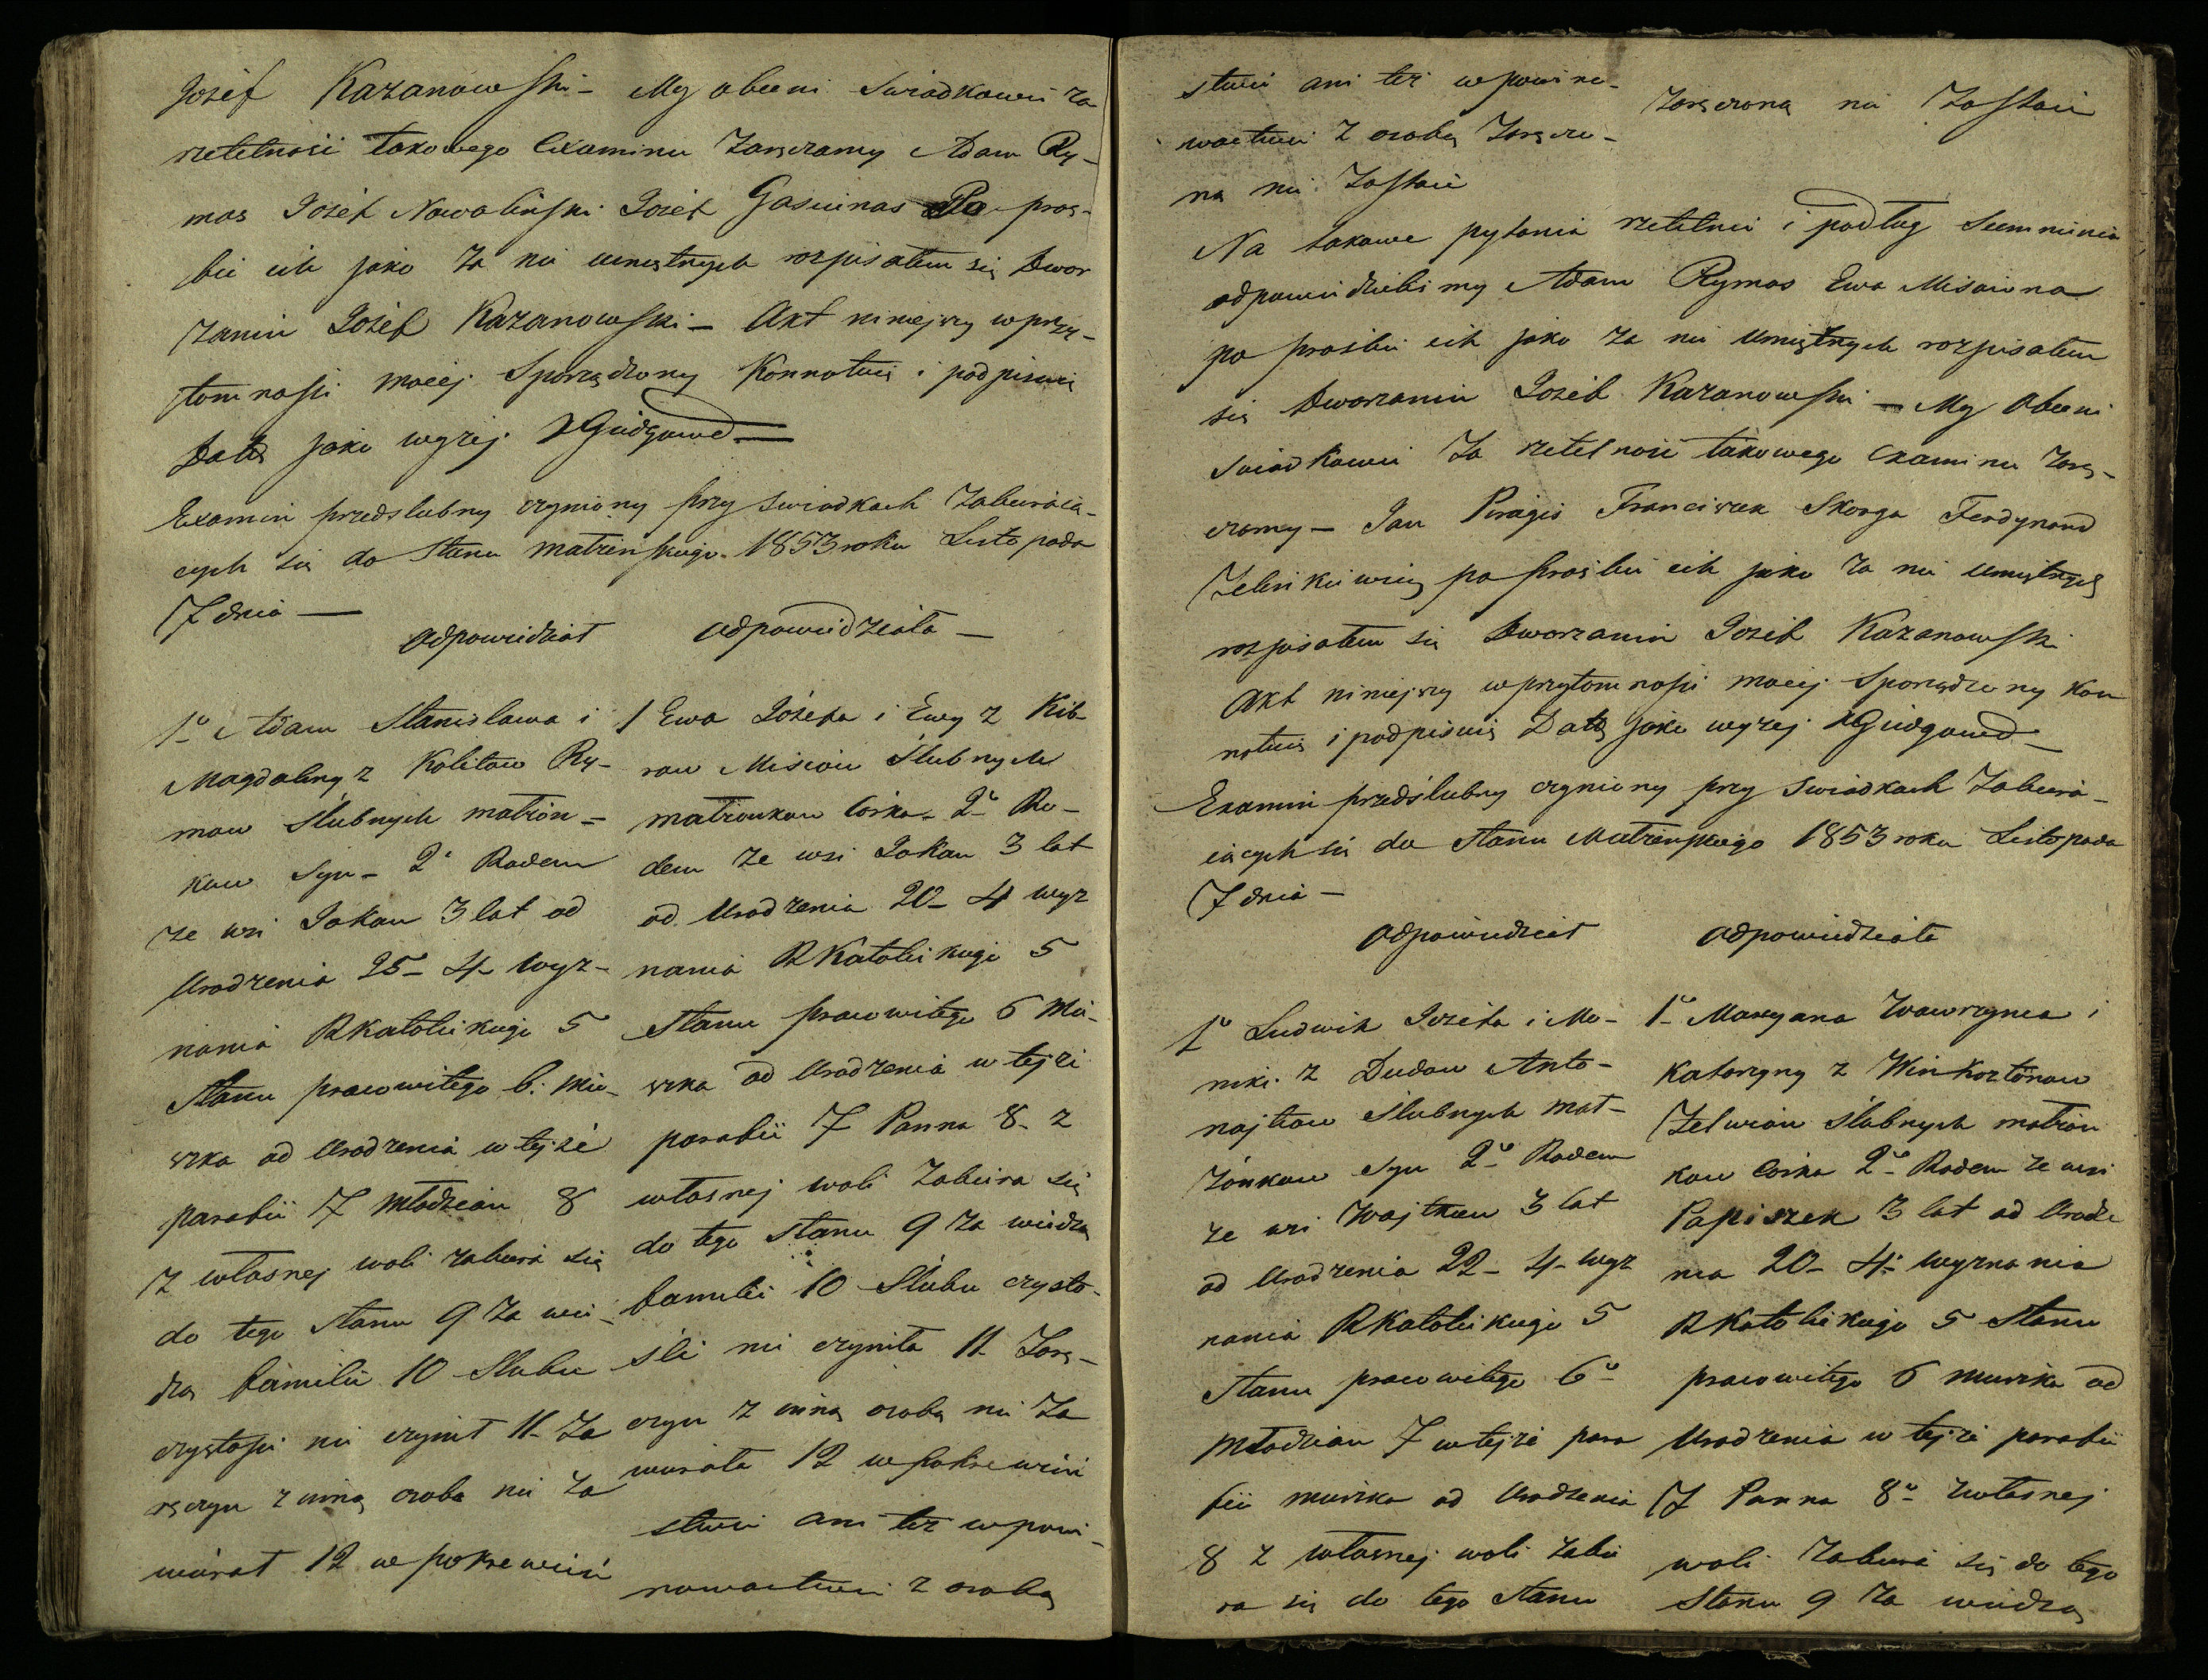 Jozéf Kazanowski – My obecni Swiadkowie za
rzetelność takowego Examinu zaręczamy Adam Ry-
mas Jozéf Nowaliński Jozéf Gasiunas Po proś-
bie ich jako za nie umiętnych rozpisałem się Dwor
zanin Jozéf Kazanowski – Akt niniejszy w przy-
tomności mojej Sporządzony Konnotuię i podpisuię
Datą jako wyżej
Examin przedslubny czyniony przy swiadkach zabieraią-
cych się do Stanu małżeńskiego 1853 roku Listopada
7 dnia –
odpowiedział
1º Adam Stanisława i
Magdaleny z Kolitow Ry-
mow Slubnych małżon-
kow Syn – 2º Rodem
ze wsi Jokan 3 lat od
Urodzenia 25 – 4 – wyz-
nania RKatolickiego 5
Stanu pracowitego 6: Mie-
szka od Urodzenia w tejże
parafii 7 młodzian 8
z własnej woli zabiera się
do tego Stanu 9 za wie-
dzą familii 10 Slubu
czystości nie czynił 11 – Za
ręczyn z inną osobą nie za
wierał 12 w pokrewień
odpowiedziała –
1 Ewa Jożefa i Ewy z Kib
row Misiow Ślubnych
małżonkow Córka – 2º Ro-
dem ze wsi Jokan 3 lat
od Urodzenia 20 – 4 wyz
nania RKatolickiego 5
Stanu pracowitego 6 Mie-
szka od Urodzenia w tejże
parafii 7 Panna 8 – z
własnej woli Zabiera się
do tego Stanu 9 za wiedzą
familii 10 Slubu czysto-
ści nie czyniła 11 Zarę-
czyn z inną osobą nie za
wierała 12 w pokrewień
stwie ani też w powi-
nowactwie z osobą
stwie ani też w powino-
wactwie z osobą Zaręczo-
na nie Zostaie
Zaręczoną nie Zostaie
Na takowe pytania rzetelnie i podług Sumnienia
odpowiedzielismy Adam Rymos Ewa Misiowna
po prośbie ich jako za nie Umiętnych rozpisałem
się Dworzanin Jozéf Kazanowski – My Obecni
Swiadkowie za rzetelność takowego Examinu Zarę-
czamy – Jan Piragis Franciszek Skorga Ferdynand
po prośbie ich jako za nie Umiętnych
rozpisałem się Dworzanin Jozéf Kazanowski
Akt niniejszy w przytomności mojej Sporządzony Kon
notuię i podpisuię Datą jako wyżej
Examin przedślubny czyniony przy Swiadkach Zabiera-
iących się do Stanu Małżeńskiego 1853 roku Listopada
7 dnia –
odpowiedział
1º Ludwik Jozéfa i Mo-
niki z Dudow Anto-
najtow Ślubnych Mał-
żonkow Syn 2º Rodem
ze wsi Wojtkow 3 lat
od Urodzenia 22 – 4 – wyz
nania RKatolickiego 5
Stanu pracowitego 6º
Młodzian 7 w tejże para
fii mieszka od Urodzenia
8 z własnej woli zabie
ra się do tego Stanu
odpowiedziała
1º Maryana Wawrzynca i
Katarzyny z
Zelwiow ślubnych małżon
kow Córka 2º Rodem ze wsi
Papiszek 3 lat od Urodze
nia 20 – 4 – wyznania
RKatolickiego 5 Stanu
pracowitego 6 mieszka od
Urodzenia w tejże parafii
7 Panna 8º z własnej
woli Zabiera się do tego
Stanu 9 za wiedzą